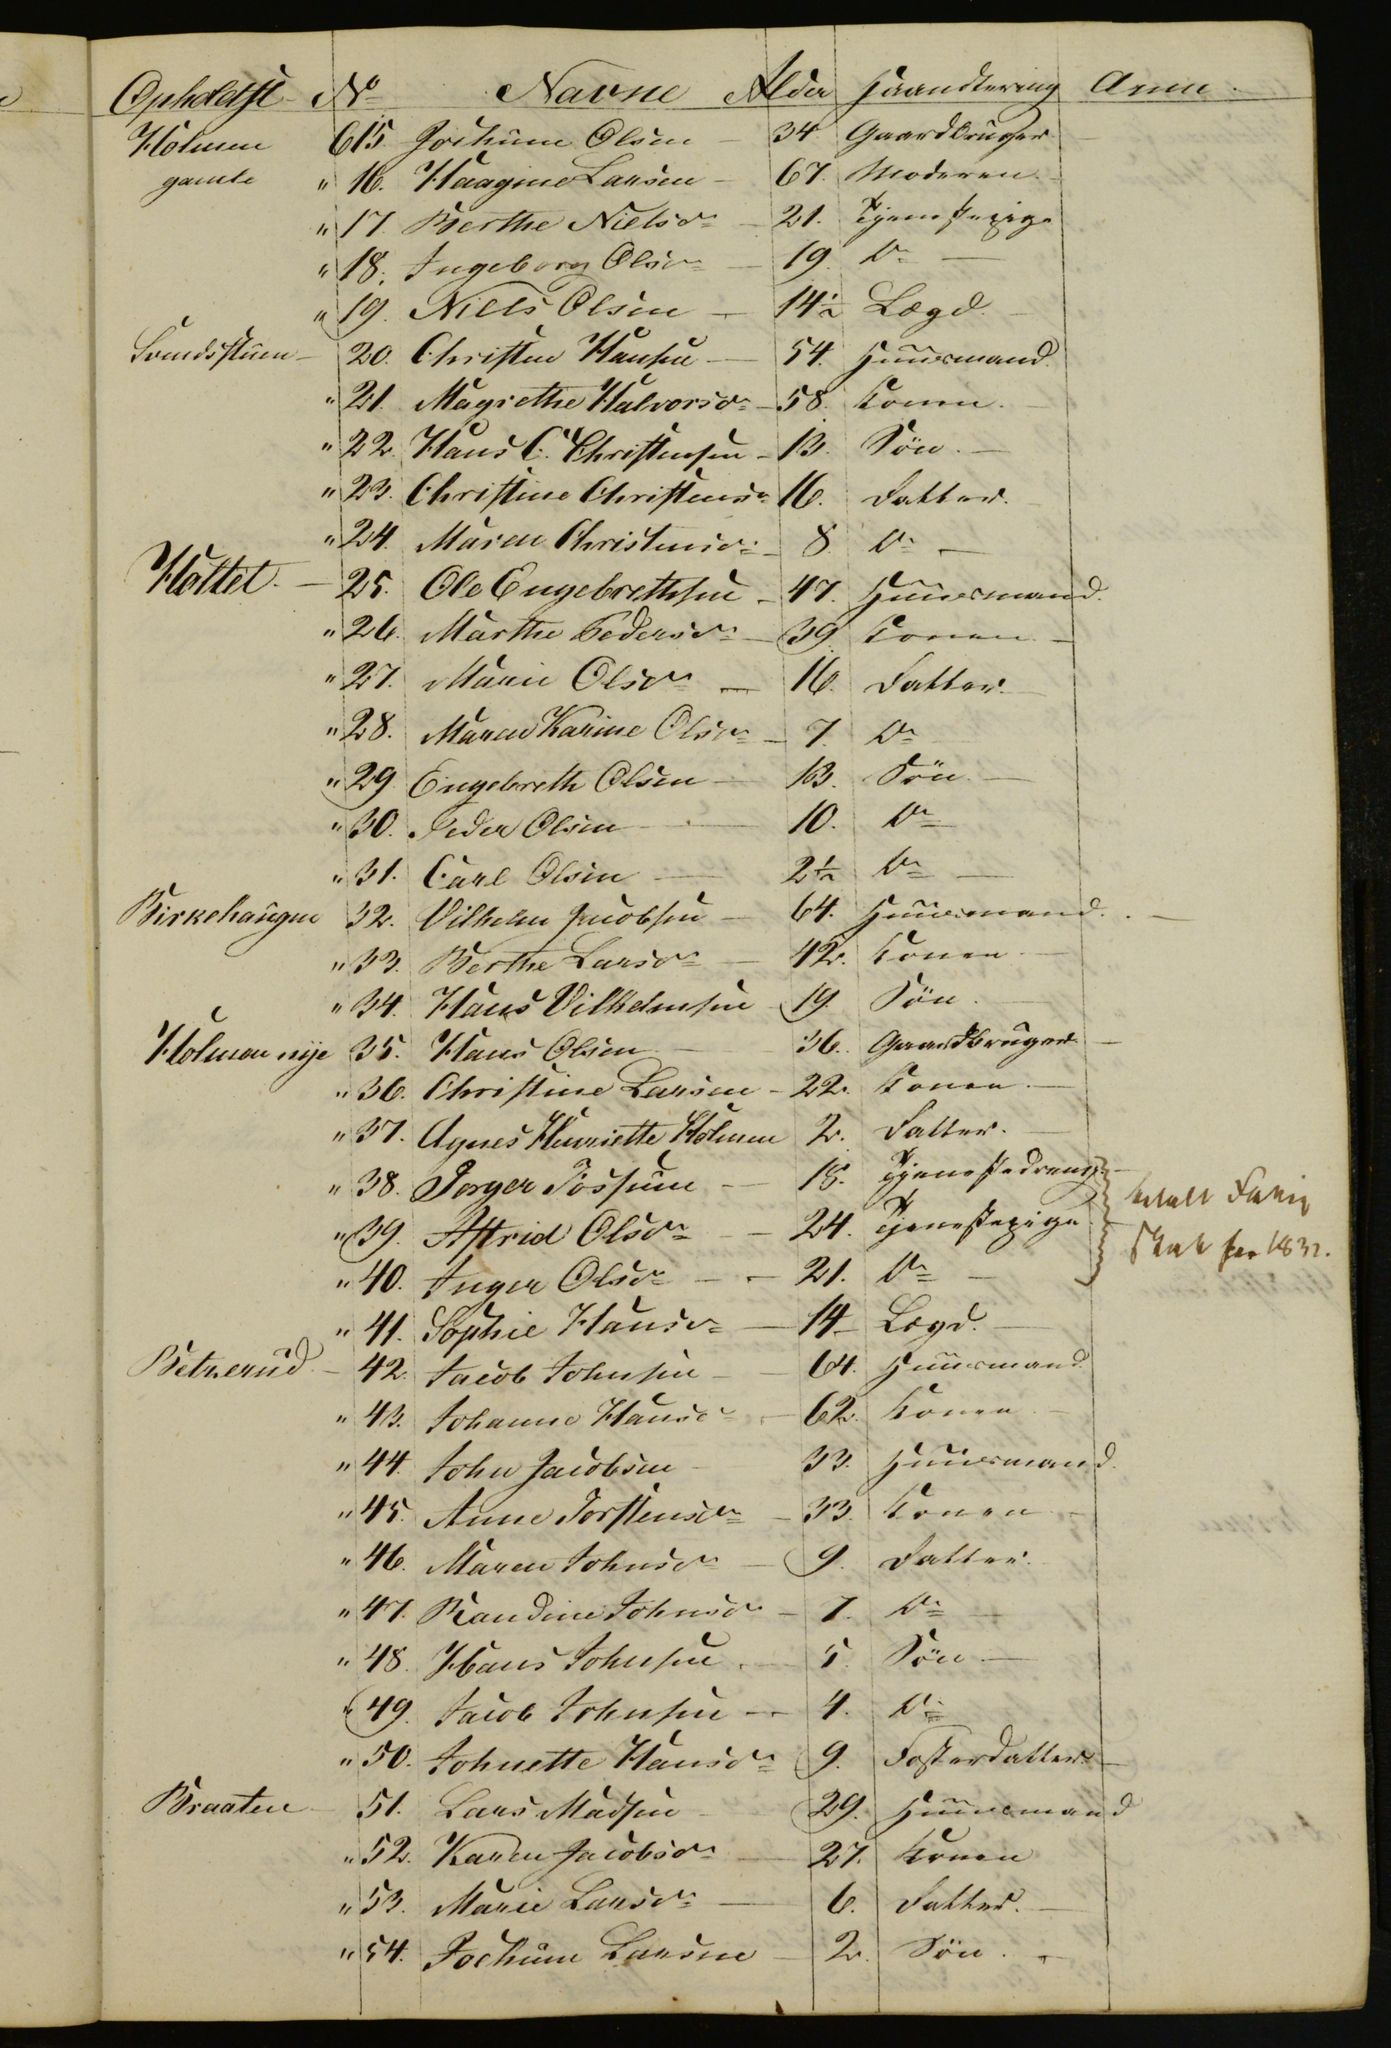 Opholdsst. No Navne Alder Haandtering Anm.
Holmen 615 Jochum Olsen 34 Gaardbruger
gamle " 16. Haagine Larsen 67. Moderen
" 17. Berthe Nielsdr 21. Tjenestepige
" 18. Ingeborg Olsdr 19. Do
" 19. Niels Olsen 14½ Lægd.
20. Christen Hansen 54. Huusmand
" 21. Magrethe Halvorsdr 58. Konen.
" 22. Hans C. Christensen 13. Søn.
" 23. Christine Christensdr 16. Datter.
" 24. Maren Christensdr 8 Do
Hottet. 25. Ole Engebrethsen 47. Huusmand.
" 26. Marthe Pedersdr 39 Konen
" 27. Marie Olsdr 16. Datter.
" 28. Maren Karine Olsdr 7. Do
" 29. Engebreth Olsen 13. Søn
" 30. Peder Olsen 10. Do
" 31. Carl Olsen 2½ Do
Birkehaugen 32. Vilhelm Jacobsen 64. Huusmand.
" 33. Berthe Larsdr 42. Konen
" 34. Hans Vilhelmsen 19. Søn.
Holmen nye 35. Hans Olsen 36. Gaardbruger
" 36. Christine Larsen 22. Konen
" 37. Agnes Henriette Holmen 2. Datter.
" 38. Torger Fossum 18. Tjenestedreng
" 39. Astrid Olsdr 24. Tjenestepige
Skat for 1832.
" 40. Inger Olsdr 21. Do
" 41. Sophie Hansdr 14 Lægd.
Betzerud 42. Jacob Johnsen 64. Huusmand
" 43. Johanne Hansdr 62. Konen
" 44. John Jacobsen 33. Huusmand.
" 45. Anne Torstensdr 33. Konen
" 46. Maren Johnsdr 9. Datter.
" 47. Randine Johnsdr 7. Do
" 48. Hans Johnsen 5. Søn
" 49. Jacob Johnsen 4. Do
" 50. Johnette Hansdr 9. Fosterdatter
Braaten 51. Lars Madsen 29. Huusmand
" 52. Karen Jacobsdr 27. Konen
" 53. Marie Larsdr 6. Datter.
" 54. Jochum Larsen 2. Søn.